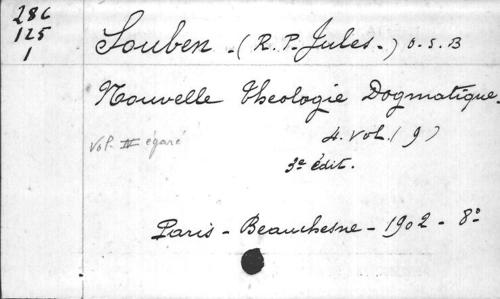 286
125
1
Souben - (R.P. Jules.) O.S.B
Nouvelle theologie Dogmatique.
4. vol. (9)
vol. III égaré
3e édit.
Paris - Beauchesne - 1902 - 8º